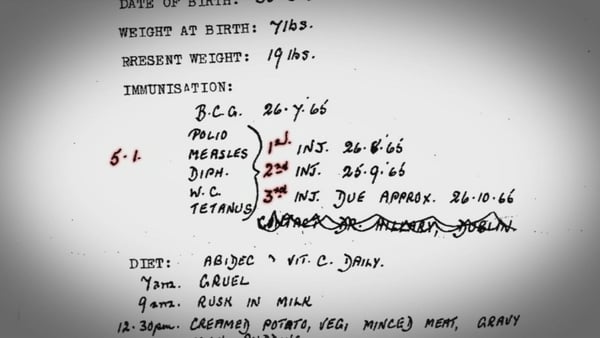 DATE OF BIRTH:
WEIGHT AT BIRTH: 7lbs.
RRESENT WEIGHT: 19 lbs.
IMMUNISATION:
B.C.G. 26.7.'65
POLIO 1st. INJ. 26.8.'65
5.1. MEASLES
DIPH. 2nd INJ. 25.9.'65
W.C. 3rd INJ. DUE APPROX. 26.10.66
TETANUS
CONTACT DR. HILLARY, DUBLIN.
DIET: ABIDEC & VIT. C. DAILY.
7am. GRUEL
9am. RUSK IN MILK
12.30pm. CREAMED POTATO, VEG, MINCED MEAT, GRAVY